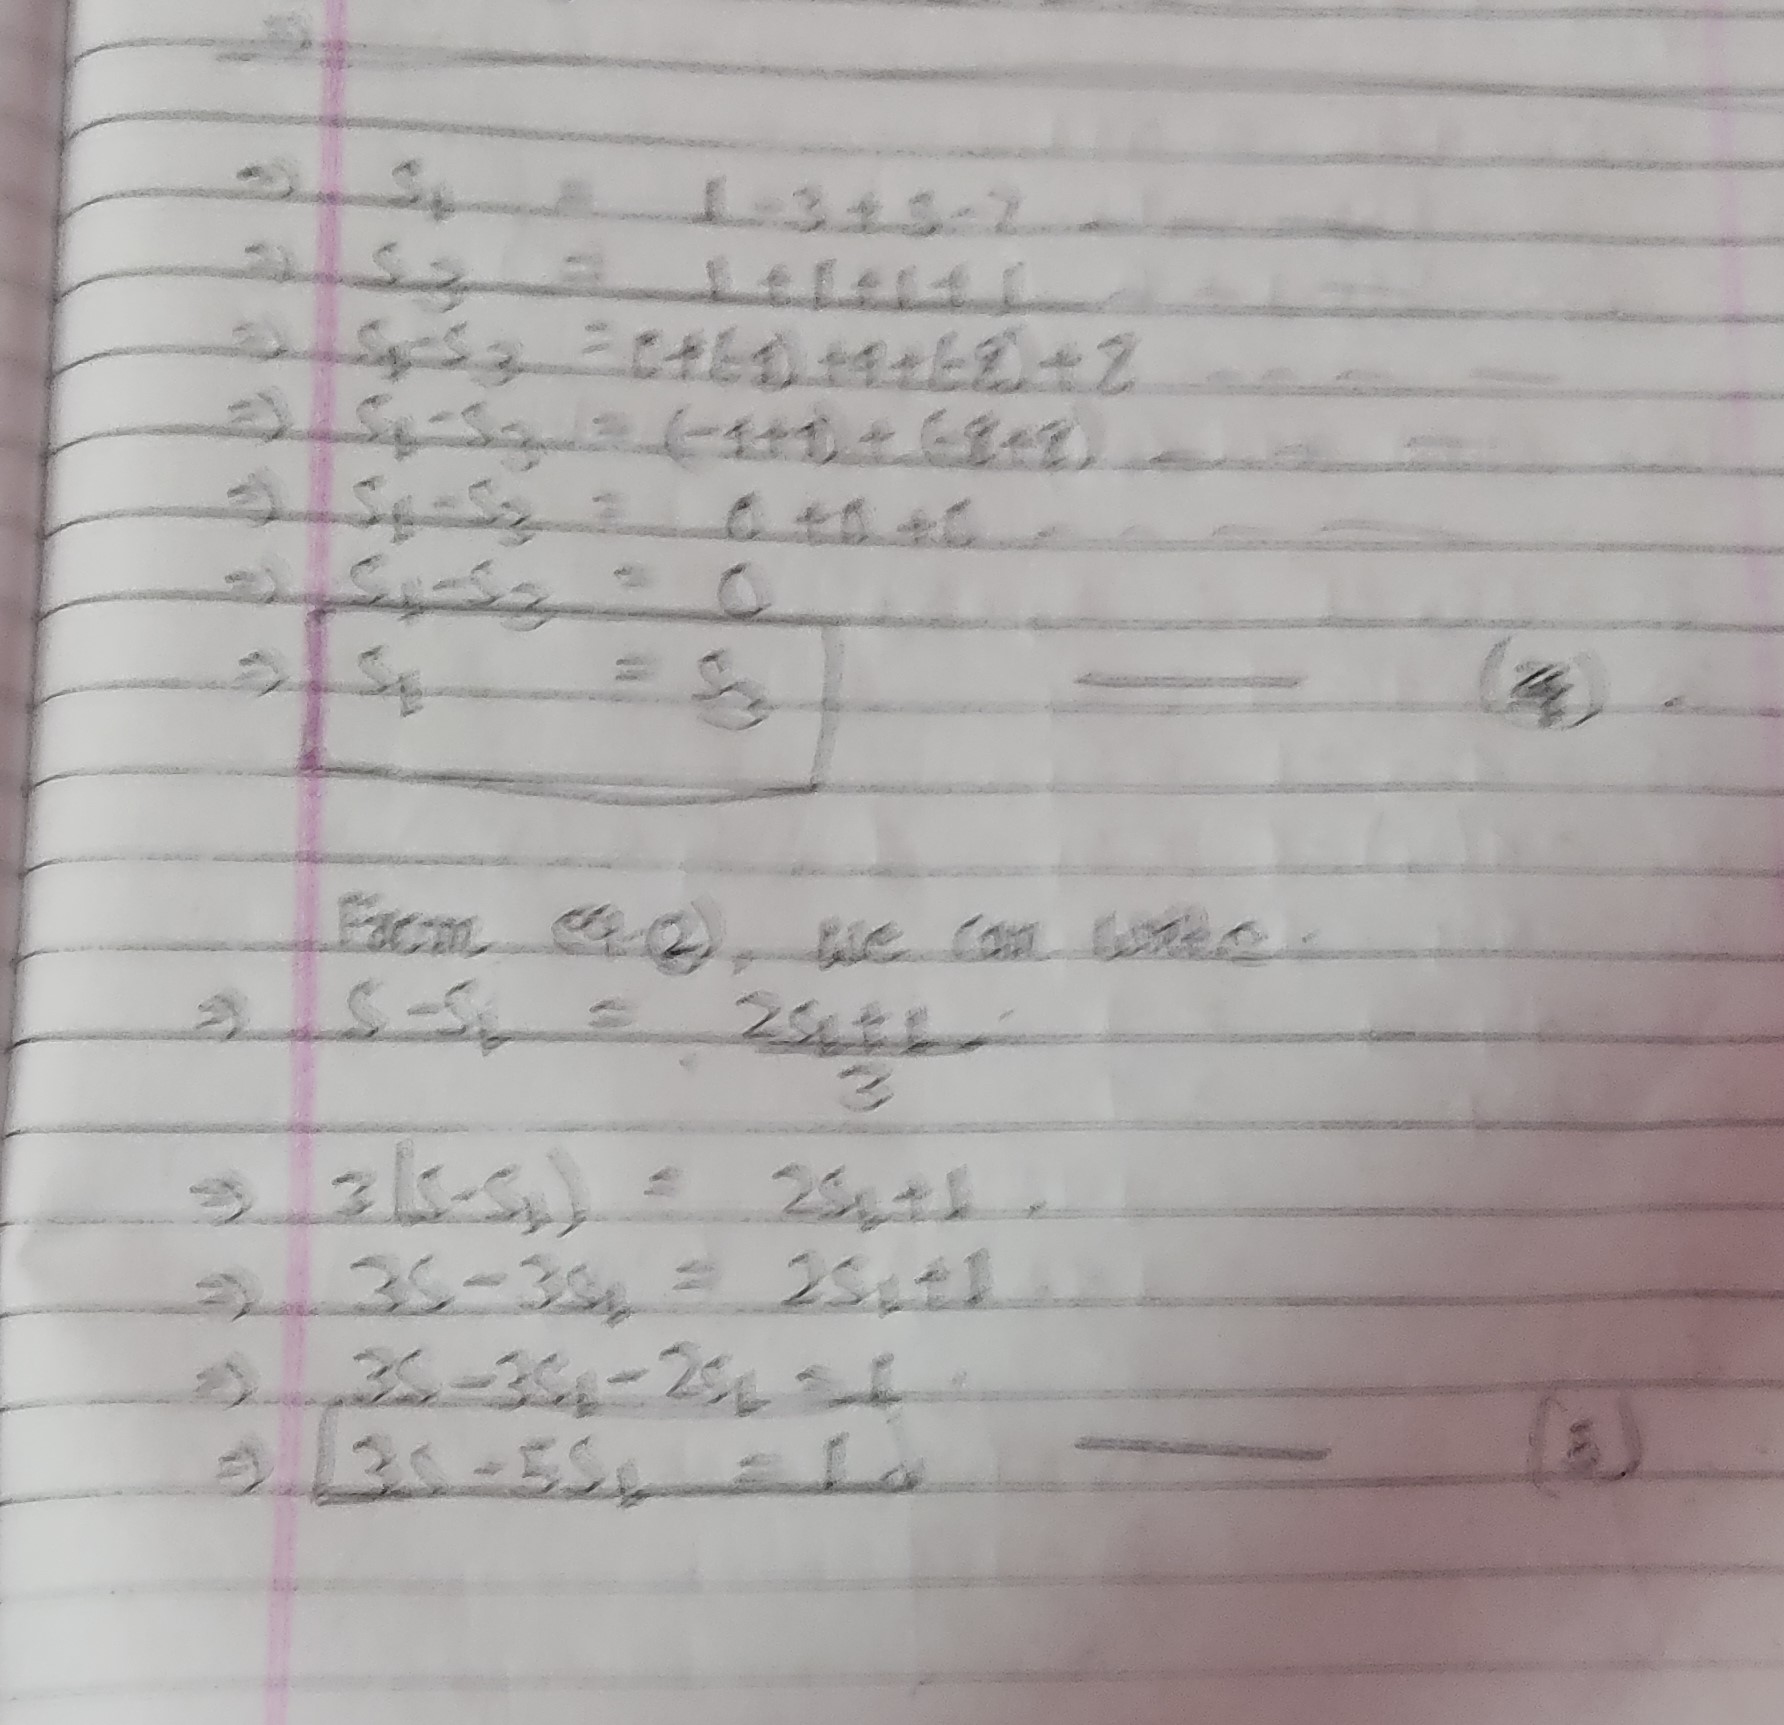 ⇒ S₁ = 1-3+5-7 - - -
⇒ S₂ = 1+1+1+1 - - - -
⇒ S₁-S₂ = 0+(-4)+4+(-8)+8 - - - - -
⇒ S₁-S₂ = (-4+4)+(-8+8) - - - -
⇒ S₁-S₂ = 0+0+0 - - - -
⇒ S₁-S₂ = 0
⇒ S₁ = S₂ —— (4).
From eq (2), we can write.
⇒ S-S₁ = 2S₁+1 / 3
⇒ 3(S-S₁) = 2S₁+1.
⇒ 3S-3S₁ = 2S₁+1
⇒ 3S-3S₁-2S₁ = 1
⇒ 3S-5S₁ = 1 —— (5)